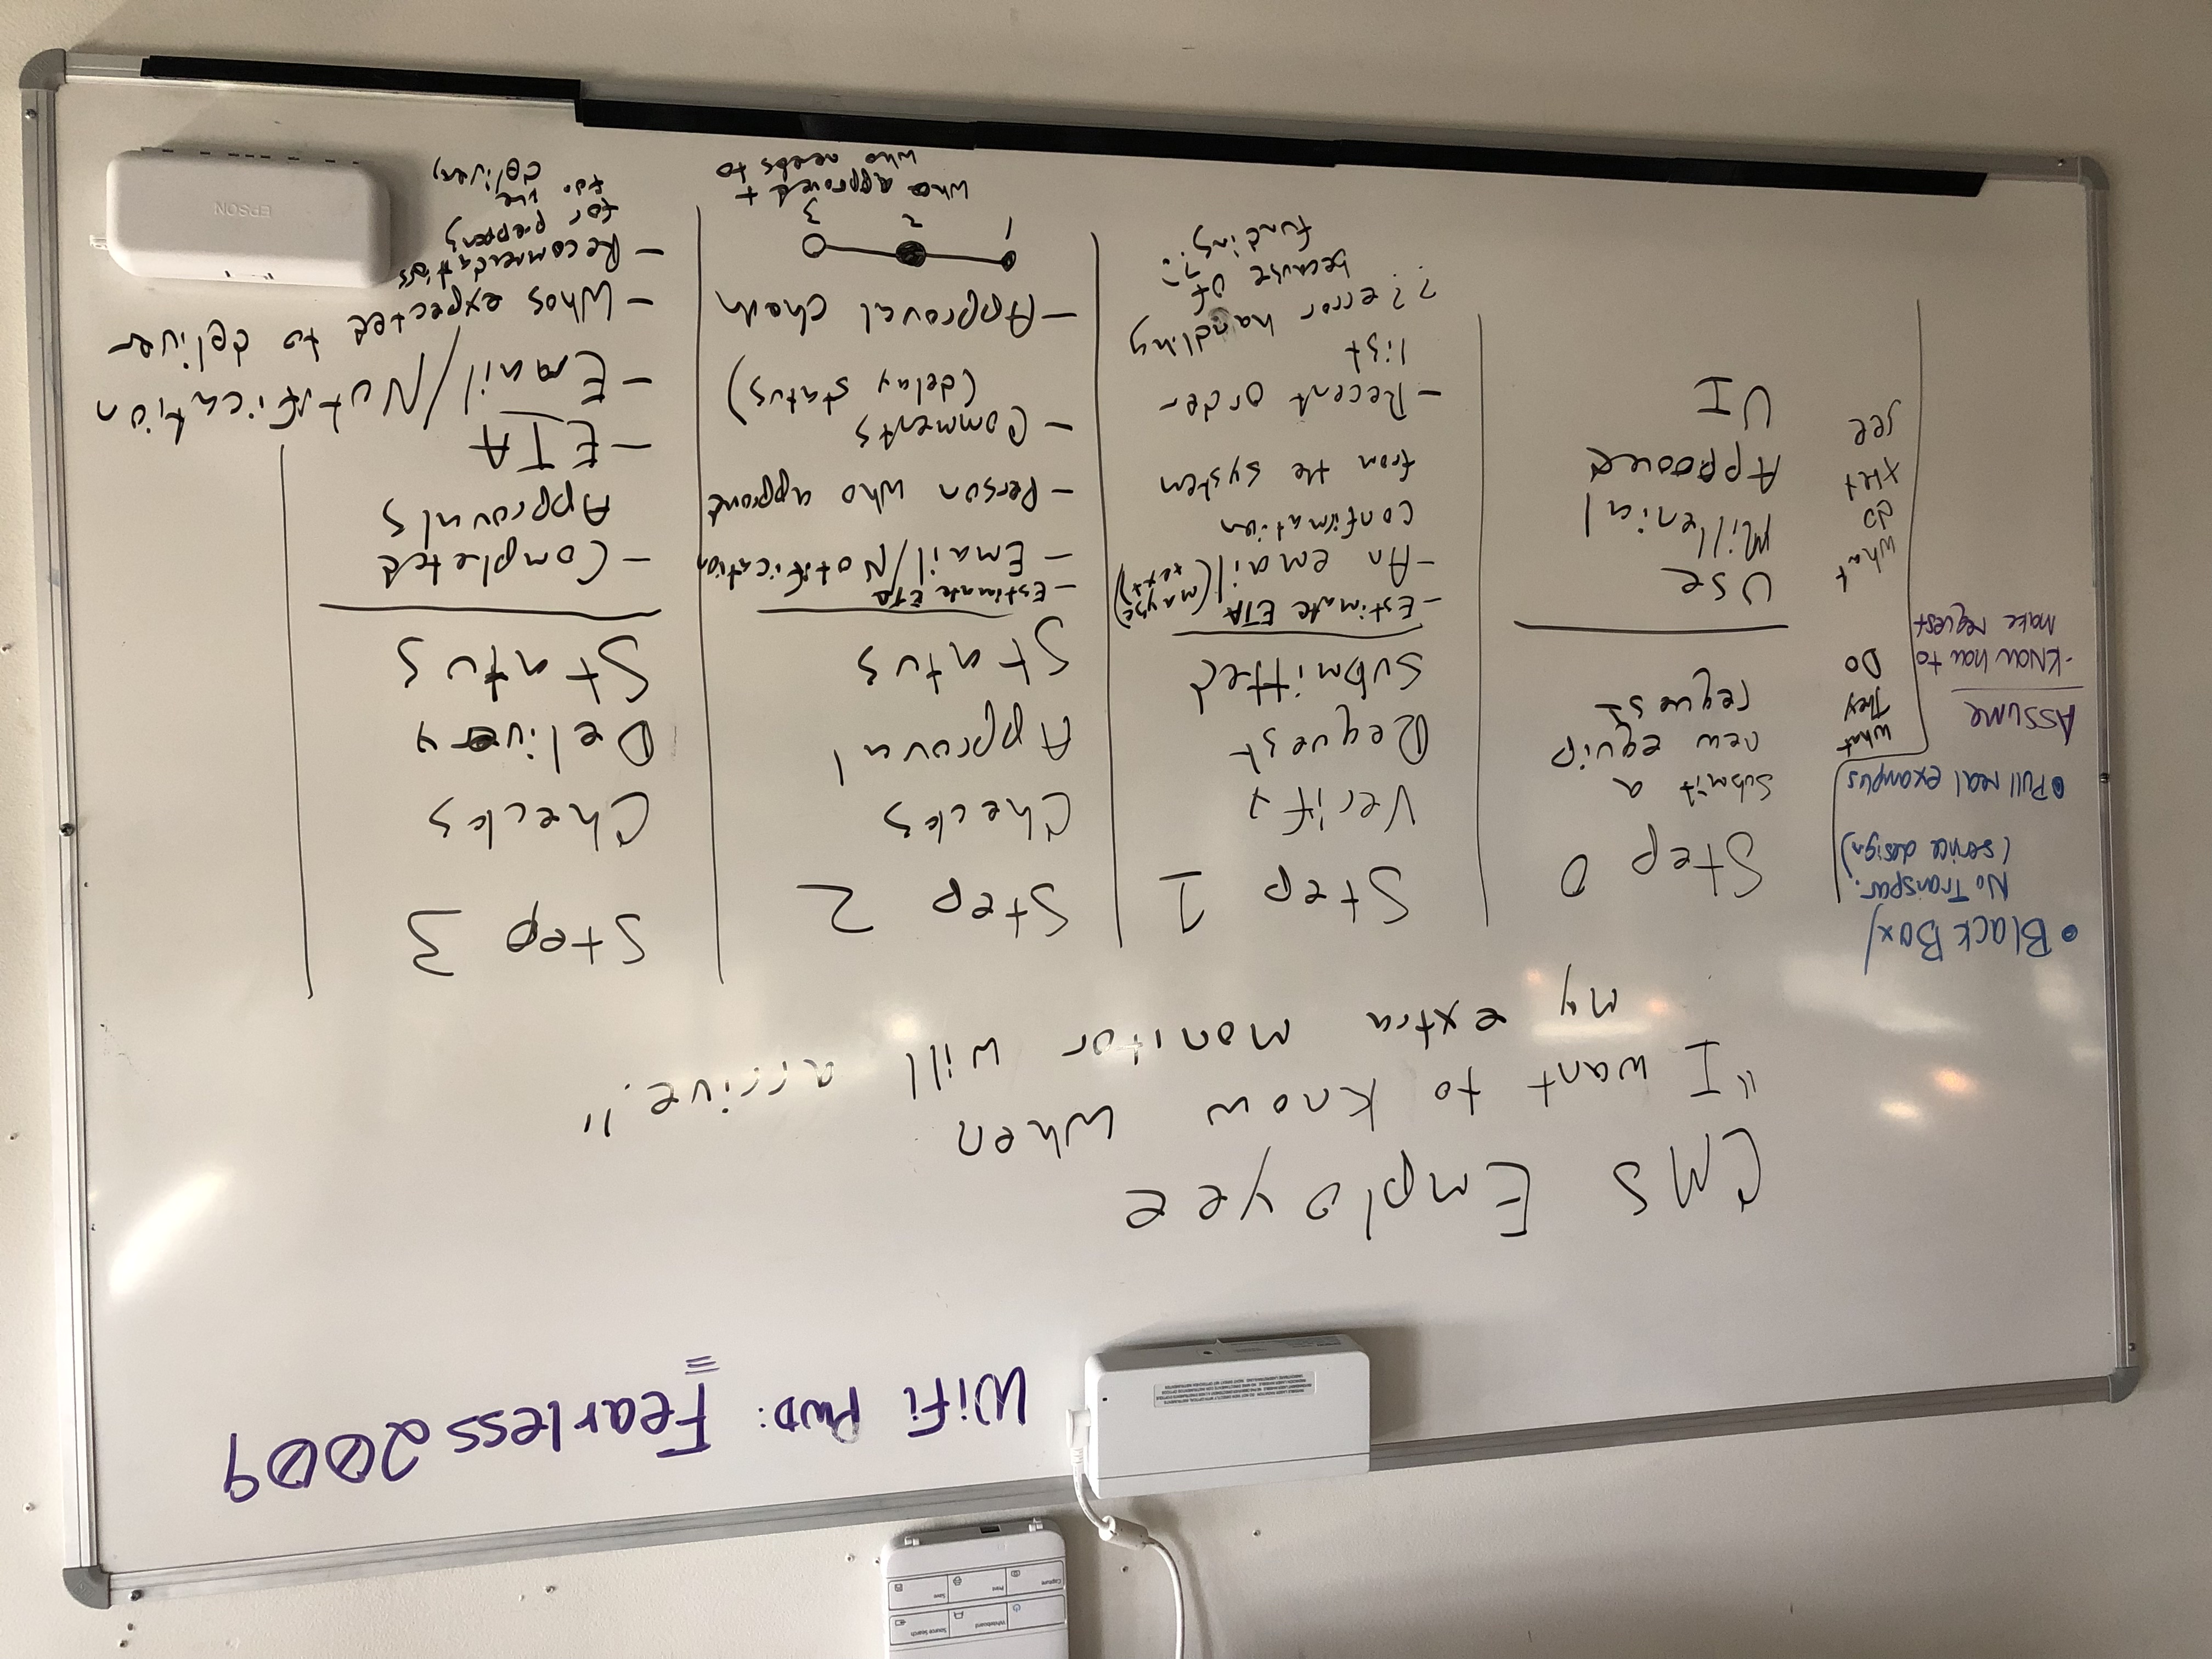 Whiteboard
Source Search
Capture
Print
Save
WiFi PWD: Fearless2009
CMS Employee
"I want to know when
my extra monitor will arrive."
• Black Box/
No Transpar.
(service design)
• Pull real examples
Assume
- Know how to
make request
what
They
Do
what
do
they
see
Step 0
Submit a
new equip
request
Use
Millenial
Approved
UI
Step 1
Verify
Request
Submitted
- Estimate ETA
- An email (maybe
text)
confirmation
from the system
- Recent order
list
?? error handling
because of
funding??
Step 2
Checks
Approval
Status
- Estimate ETA
- Email/Notification
- Person who approved
- Comments
(delay status)
- Approval chain
1 2 3
who approved +
who needs to
Step 3
Checks
Delivery
Status
- Completed
Approvals
- ETA
- Email/Notification
- Whos expected to deliver
- Recommendations
for prepping
for the
delivery
EPSON